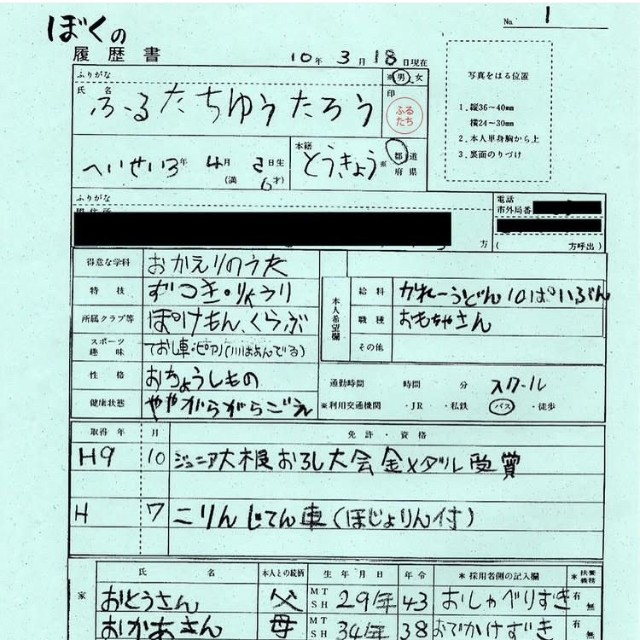 ぼくの
No. 1
履歴書
10年 3月 18日現在
ふりがな
※男・女
氏名
ふるたちゆうたろう
印
ふるたち
写真をはる位置
1. 縦36〜40mm
横24〜30mm
2. 本人単身胸から上
3. 裏面のりづけ
へいせい3年 4月 2日生
(満 6才)
本籍
とうきょう
※
都 道
府 県
ふりがな
現住所
方
電話
市外局番
( 方呼出)
得意な学科 おかえりのうた
特技 ずつき・りょうり
所属クラブ等 ぽけもん、くらぶ
スポーツ
趣味
てお車・ピアノ(川はあんでる)
性格 おちょうしもの
健康状態 ややがらがらごえ
本人希望欄
給料 かれーうどん10ぱいぶん
職種 おもちゃさん
その他
通勤時間 時間 分 スクール
※利用交通機関 ・JR ・私鉄 ・バス ・徒歩
取得年 月 免許・資格
H9 10 ジュニア大根おろし大会金メダル受賞
H 7 二りんじてん車(ほじょりん付)
家
氏名 本人との続柄 生年月日 年令 ※採用者側の記入欄 ※扶養義務
おとうさん 父 MT SH 29年 43 おしゃべりずき 有 無
おかあさん 母 MT SH 34年 38 おでかけずき 有 無